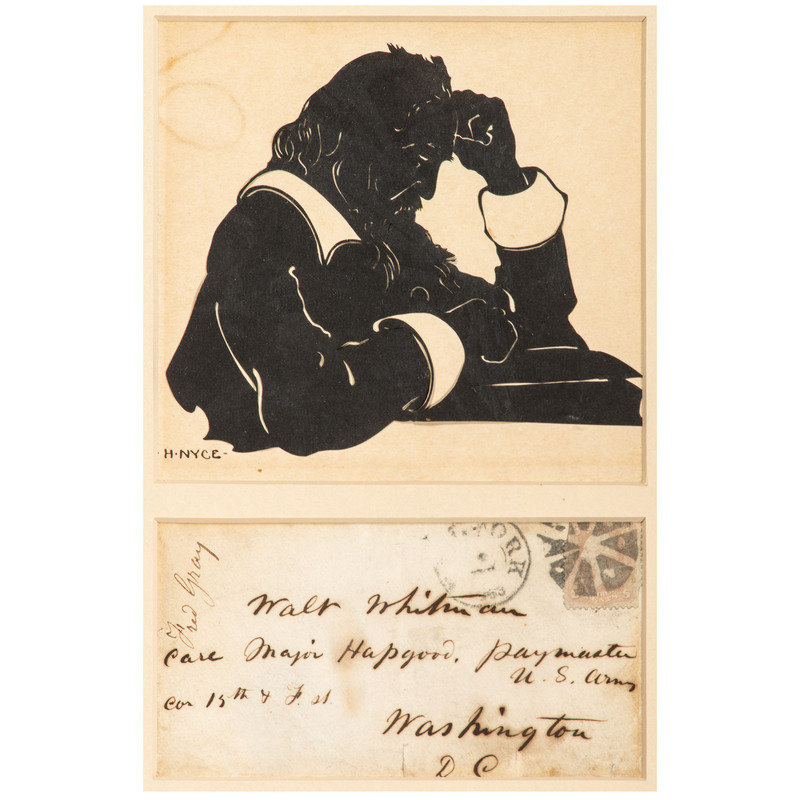 ·H·NYCE-
YORK
Fred Gray
Walt Whitman
care Major Hapgood, paymaster
U. S. Army
cor 15th & F. st
Washington
D C